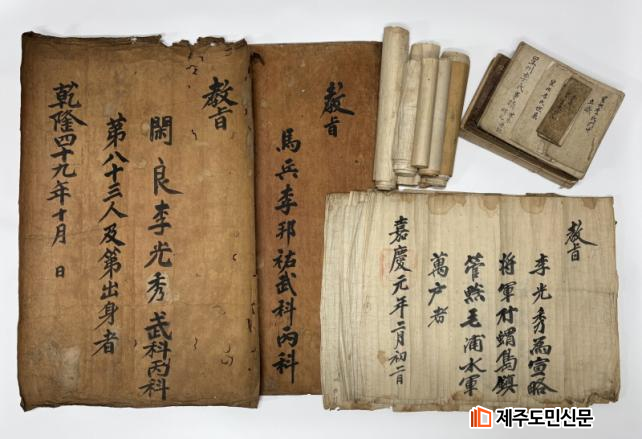 敎旨
閑良李光秀武科丙科
第八十三人及第出身者
乾隆四十九年十月 日
敎旨
馬兵李邦祐武科丙科
敎旨
李光秀爲宣略
將軍行蝟島鎭
管黔毛浦水軍
萬户者
嘉慶元年二月初二日
星州李氏
제주도민신문